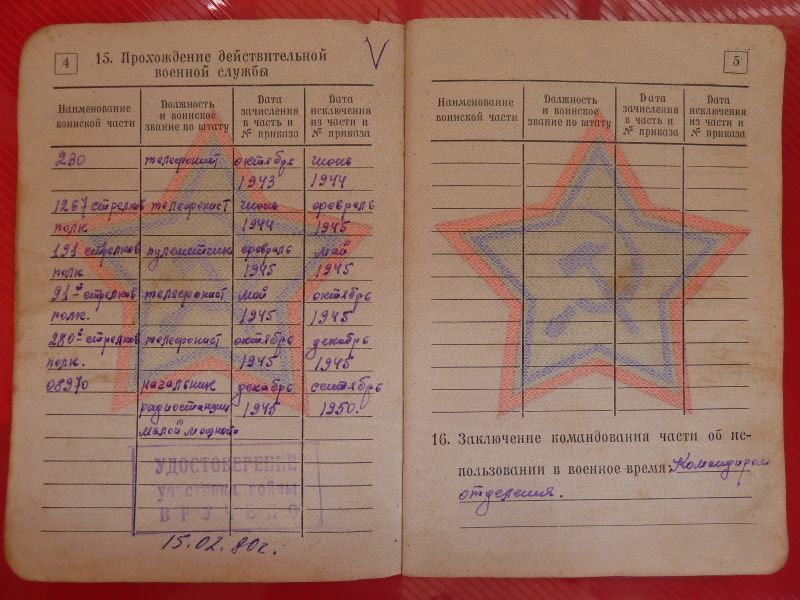 4
15. Прохождение действительной
военной службы
V
Наименование
воинской части
Должность
и воинское
звание по штату
Дата
зачисления
в часть и
№ приказа
Дата
исключения
из части и
№ приказа
230 телефонист октябрь июнь
1943 1944
1267 стрелков телефонист июнь февраль
полк 1944 1945
191 стрелков пулеметчик февраль май
полк 1945 1945
91-й стрелков телефонист май октябрь
полк. 1945 1945
280-й стрелков телефонист октябрь декабрь
полк. 1945 1945
08970 начальник декабрь сентябрь
радиостанции 1945 1950.
малой мощности
УДОСТОВЕРЕНИЕ
участника войны
ВРУЧЕНО
15.02.80г.
5
Наименование
воинской части
Должность
и воинское
звание по штату
Дата
зачисления
в часть и
№ приказа
Дата
исключения
из части и
№ приказа
16. Заключение командования части об ис-
пользовании в военное время: Командиром
отделения.